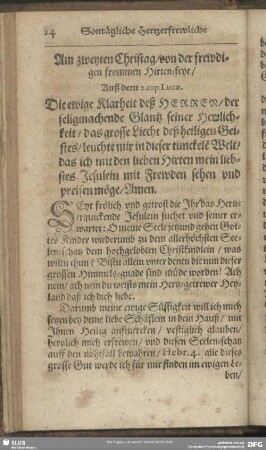 24 Sontägliche Hertzerfrewliche
Am zweyten Christag/ von der frewdi-
gen frommen Hirten-feyr/
Auß dem 2. cap. Lucæ.
Die ewige Klarheit deß HERREN/ der
seligmachende Glantz seiner Herrlich-
keit/ das grosse Liecht deß heiligen Gei-
stes/ leuchte mir in dieser tunckele Welt/
das ich mit den lieben Hirten mein lieb-
stes Jesulein mit Frewden sehen und
preisen möge/ Amen.
SEyt frölich und getrost die Ihr das Hertz-
erquickende Jesulein suchet und seiner er-
wartet: O meine Seele jetzund gehen Got-
tes Kinder wiederumb zu dem allerhöchsten See-
len-schatz dem hochgelobten Christkindlein/ was
wiltu thun? Bistu allein unter denen die nun dieser
grossen Himmels-gnade sind müde worden? Ach
nein/ ach nein du weists mein Hertz-getrewer Hey-
land daß ich dich liebe.
Darumb meine ewige Süssigkeit will ich mich
setzen bey deine liebe Schäfflein in dein Hauß/ mit
Ihnen Heilig auffmercken/ vestiglich glauben/
hertzlich mich erfrewen/ und diesen Seelen-schatz
auff den nohtfall bewahren/ Hebr. 4. alle dieses
grosse Gut werde ich für mir finden im ewigen Le-
ben/
SLUB
DFG